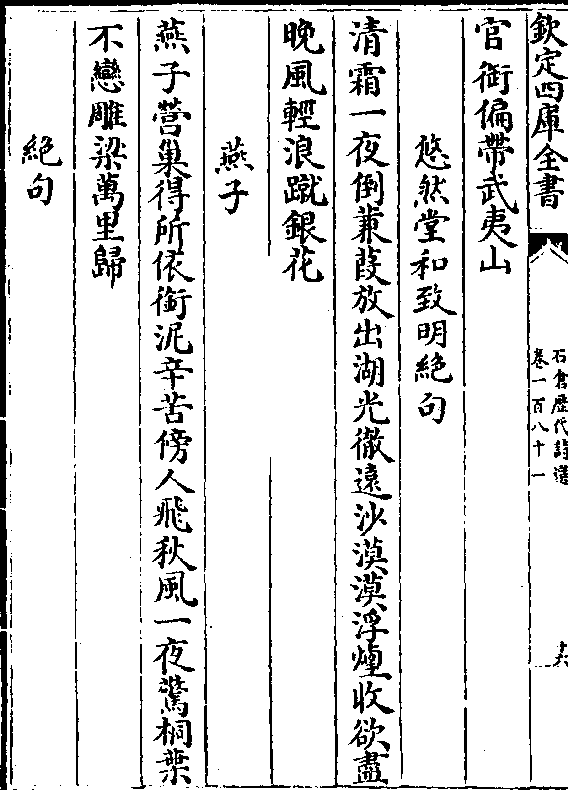 欽定四庫全書
石倉歷代詩選
卷一百八十一
十六
官銜偏帶武夷山
悠然堂和致明絶句
清霜一夜倒蒹葭放出湖光徹遠沙漠漠浮煙收欲盡
晚風輕浪蹴銀花
燕子
燕子營巢得所依銜泥辛苦傍人飛秋風一夜驚桐葉
不戀雕梁萬里歸
絕句